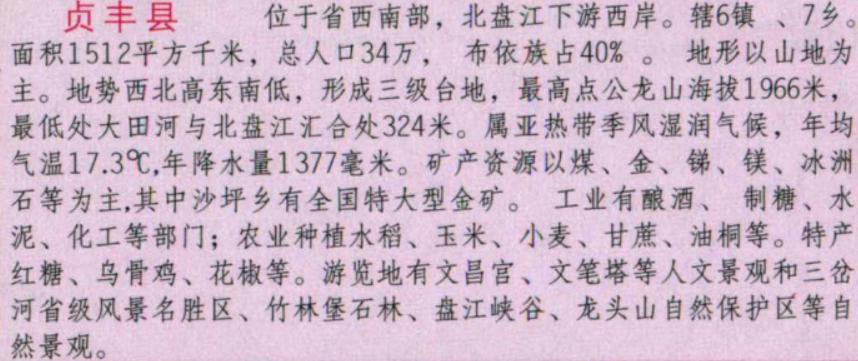 贞丰县 位于省西南部，北盘江下游西岸。辖6镇 、7乡。
面积1512平方千米，总人口34万， 布依族占40% 。 地形以山地为
主。地势西北高东南低，形成三级台地，最高点公龙山海拔1966米，
最低处大田河与北盘江汇合处324米。属亚热带季风湿润气候，年均
气温17.3℃,年降水量1377毫米。矿产资源以煤、金、锑、镁、冰洲
石等为主,其中沙坪乡有全国特大型金矿。 工业有酿酒、 制糖、水
泥、化工等部门；农业种植水稻、玉米、小麦、甘蔗、油桐等。特产
红糖、乌骨鸡、花椒等。游览地有文昌宫、文笔塔等人文景观和三岔
河省级风景名胜区、竹林堡石林、盘江峡谷、龙头山自然保护区等自
然景观。